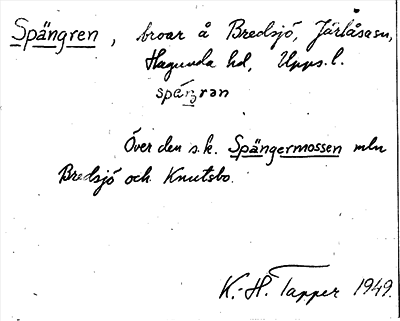 Spängren, broar å Bredsjö, Järlåsasn,
Hagunda hd, Upps. l.
spáŋrən
Över den s.k. Spängermossen mln
Bredsjö och Knutsbo.
K.-H. Tapper 1949.